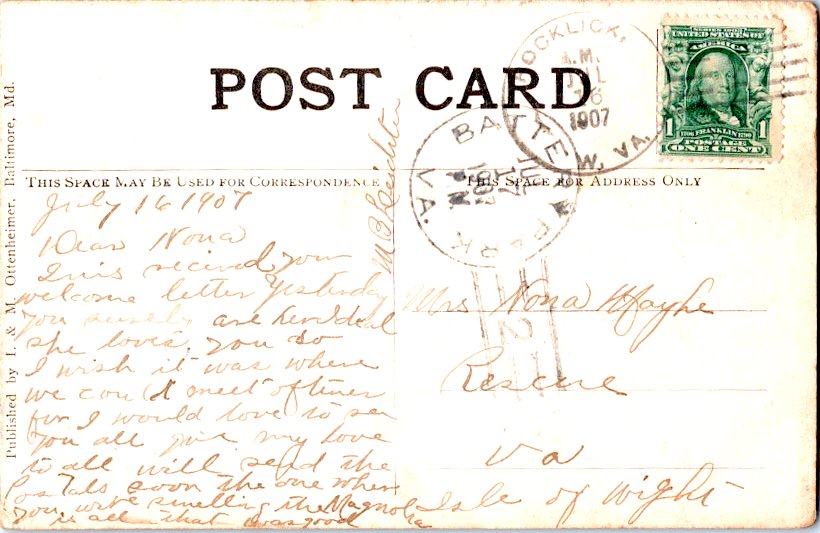 POST CARD
ROCKLICK,
A.M.
JUL
16
1907
W. VA.
SERIES 1902
UNITED STATES OF
AMERICA
1706 FRANKLIN 1790
1 POSTAGE 1
ONE CENT
BATTERY PARK VA.
JUL
17
1907
P.M.
2
THIS SPACE MAY BE USED FOR CORRESPONDENCE
THIS SPACE FOR ADDRESS ONLY
Published by I. & M. Ottenheimer, Baltimore, Md.
July 16 1907
Dear Nona
recived your
welcome letter yesterday
you surely are her Ideal
she loves you so
I wish it was where
we could meet oftener
for I would love to see
you all give my love
to all will send the
Postals soon the one where
you were smelling the Magnolia
is all that was good
Mrs Nona
Rescue
Va
Isle of Wight